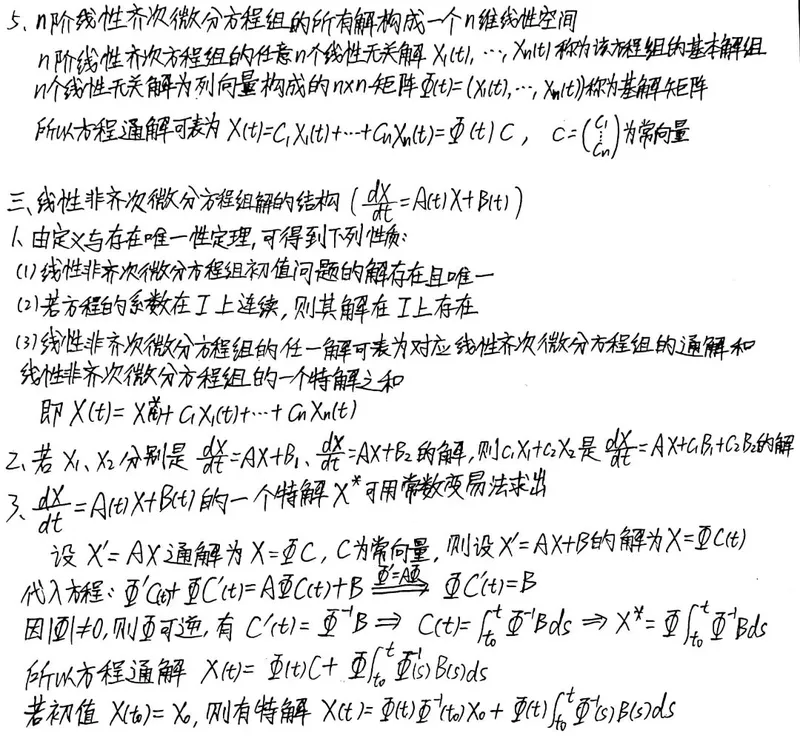 5、n阶线性齐次微分方程组的所有解构成一个n维线性空间
n阶线性齐次方程组的任意n个线性无关解 X₁(t), ⋯, Xn(t) 称为该方程组的基本解组
n个线性无关解为列向量构成的n×n矩阵Φ(t)=(X₁(t),⋯, Xn(t))称为基解矩阵
所以方程通解可表为 X(t)=C₁X₁(t)+⋯+CnXn(t)=Φ(t)C, C=(C₁ ⋮ Cn)为常向量
三、线性非齐次微分方程组解的结构 (dX/dt=A(t)X+B(t))
1、由定义与存在唯一性定理,可得到下列性质:
(1)线性非齐次微分方程组初值问题的解存在且唯一
(2)若方程的系数在I上连续,则其解在I上存在
(3)线性非齐次微分方程组的任一解可表为对应线性齐次微分方程组的通解和
线性非齐次微分方程组的一个特解之和
即 X(t)= X*(t)+ C₁X₁(t)+⋯+ CnXn(t)
2、若 X₁、X₂分别是 dX/dt=AX+B₁、dX/dt=AX+B₂的解,则C₁X₁+C₂X₂是 dX/dt=AX+C₁B₁+C₂B₂的解
3、dX/dt=A(t)X+B(t)的一个特解X*可用常数变易法求出
设 X'=AX通解为X=ΦC, C为常向量, 则设X'=AX+B的解为X=ΦC(t)
代入方程: Φ'C(t)+ΦC'(t)=AΦC(t)+B ⟹(Φ'=AΦ) ΦC'(t)=B
因|Φ|≠0,则Φ可逆,有 C'(t)=Φ⁻¹B ⇒ C(t)=∫_{t₀}^{t}Φ⁻¹Bds ⇒ X*=Φ∫_{t₀}^{t}Φ⁻¹Bds
所以方程通解 X(t)=Φ(t)C+Φ∫_{t₀}^{t}Φ⁻¹(s)B(s)ds
若初值 X(t₀)=X₀, 则有特解 X(t)=Φ(t)Φ⁻¹(t₀)X₀+Φ(t)∫_{t₀}^{t}Φ⁻¹(s)B(s)ds